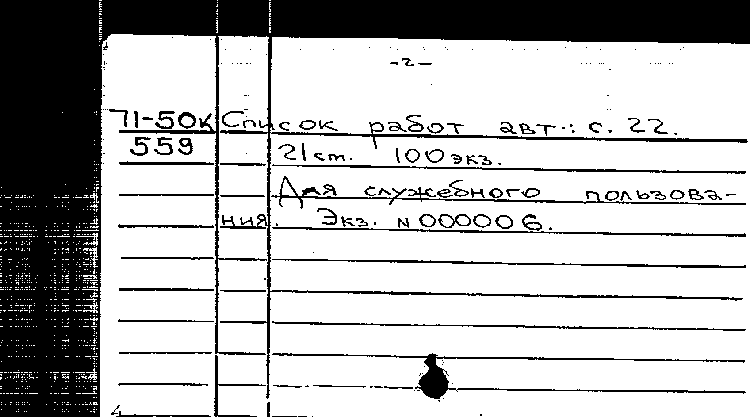 -2-
71-50к Список работ авт.: с. 22.
559 21 cm. 100 экз.
Для служебного пользова-
ния. Экз. N 000006.